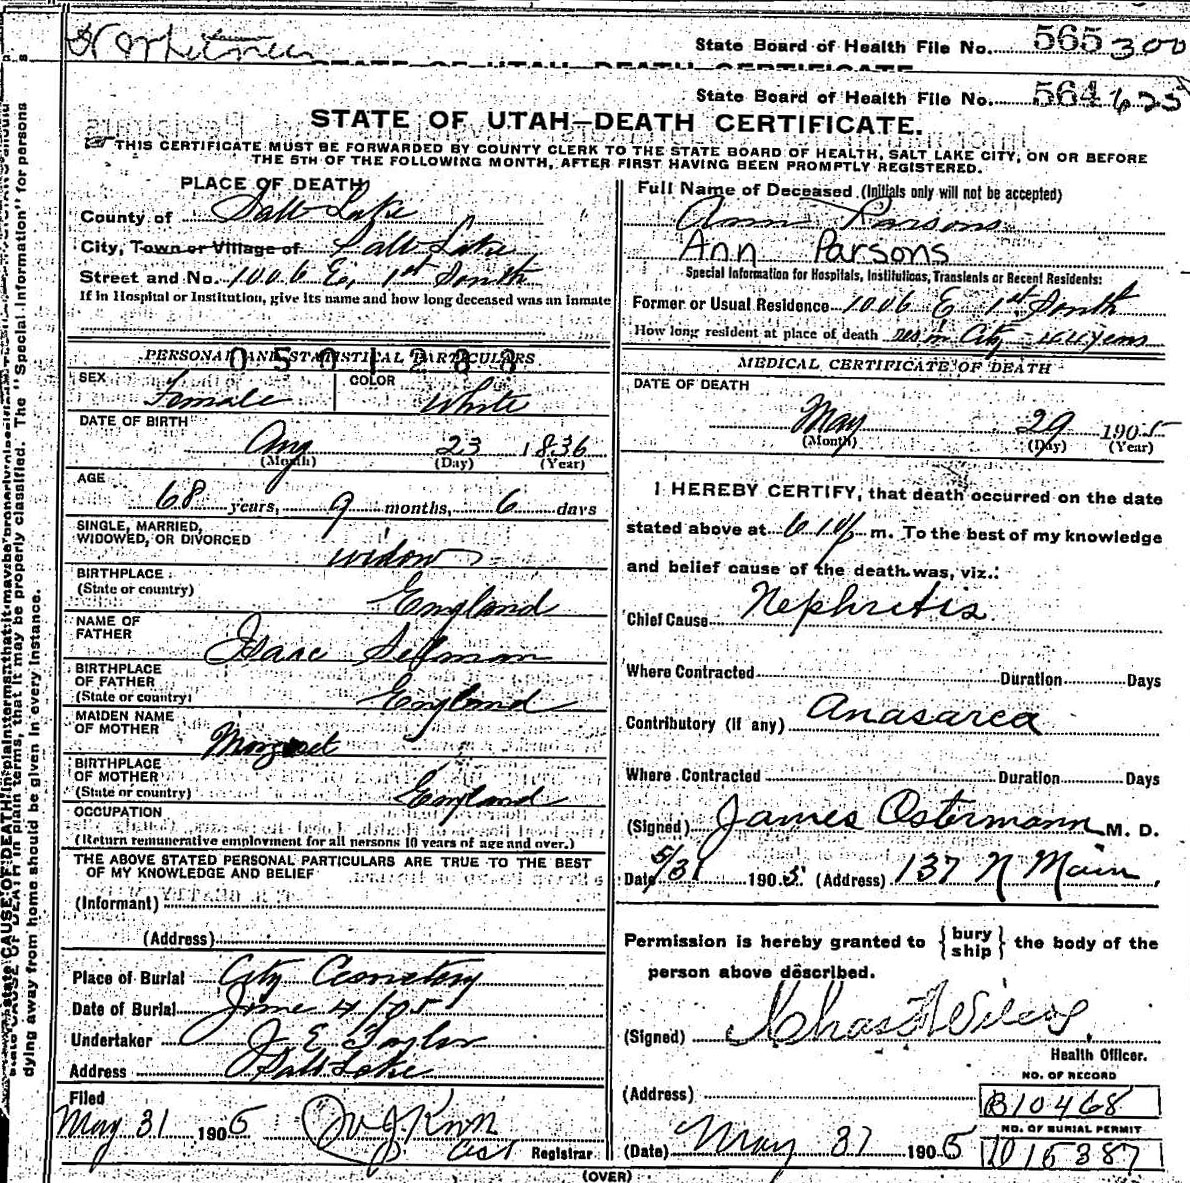 State Board of Health File No. 565 300
STATE OF UTAH—DEATH CERTIFICATE
State Board of Health File No. 564 625
STATE OF UTAH—DEATH CERTIFICATE.
THIS CERTIFICATE MUST BE FORWARDED BY COUNTY CLERK TO THE STATE BOARD OF HEALTH, SALT LAKE CITY, ON OR BEFORE
THE 5TH OF THE FOLLOWING MONTH, AFTER FIRST HAVING BEEN PROMPTLY REGISTERED.
PLACE OF DEATH
County of Salt Lake
City, Town or Village of Salt Lake
Street and No. 1006 E. 1st South
If in Hospital or Institution, give its name and how long deceased was an inmate
PERSONAL AND STATISTICAL PARTICULARS
0501288
SEX Female COLOR White
DATE OF BIRTH
Aug 23 1836
(Month) (Day) (Year)
AGE
68 years, 9 months, 6 days
SINGLE, MARRIED,
WIDOWED, OR DIVORCED widow
BIRTHPLACE
(State or country) England
NAME OF
FATHER Isaac Sellman
BIRTHPLACE
OF FATHER
(State or country) England
MAIDEN NAME
OF MOTHER Margaret
BIRTHPLACE
OF MOTHER
(State or country) England
OCCUPATION
(Return remunerative employment for all persons 10 years of age and over.)
THE ABOVE STATED PERSONAL PARTICULARS ARE TRUE TO THE BEST
OF MY KNOWLEDGE AND BELIEF
(Informant)
(Address)
Place of Burial City Cemetery
Date of Burial June 4/05
Undertaker J E Taylor
Address Salt Lake
Filed
May 31 1905
Registrar
Full Name of Deceased (Initials only will not be accepted)
Ann Parsons
Ann Parsons
Special Information for Hospitals, Institutions, Transients or Recent Residents:
Former or Usual Residence 1006 E 1st South
How long resident at place of death
MEDICAL CERTIFICATE OF DEATH
DATE OF DEATH
May 29 1905
(Month) (Day) (Year)
I HEREBY CERTIFY, that death occurred on the date
stated above at m. To the best of my knowledge
and belief cause of the death was, viz.:
Chief Cause Nephretis
Where Contracted Duration Days
Contributory (if any) Anasarca
Where Contracted Duration Days
(Signed) James Ostermann M. D.
Date 5/31 1905. (Address) 137 N Main
Permission is hereby granted to {bury ship} the body of the
person above described.
(Signed) Chas
Health Officer.
(Address)
NO. OF RECORD
B10468
(Date) May 31 1905
NO. OF BURIAL PERMIT
1015387
(OVER)
state CAUSE OF DEATH in plain terms, that it may be properly classified. The "Special Information" for persons
dying away from home should be given in every instance.